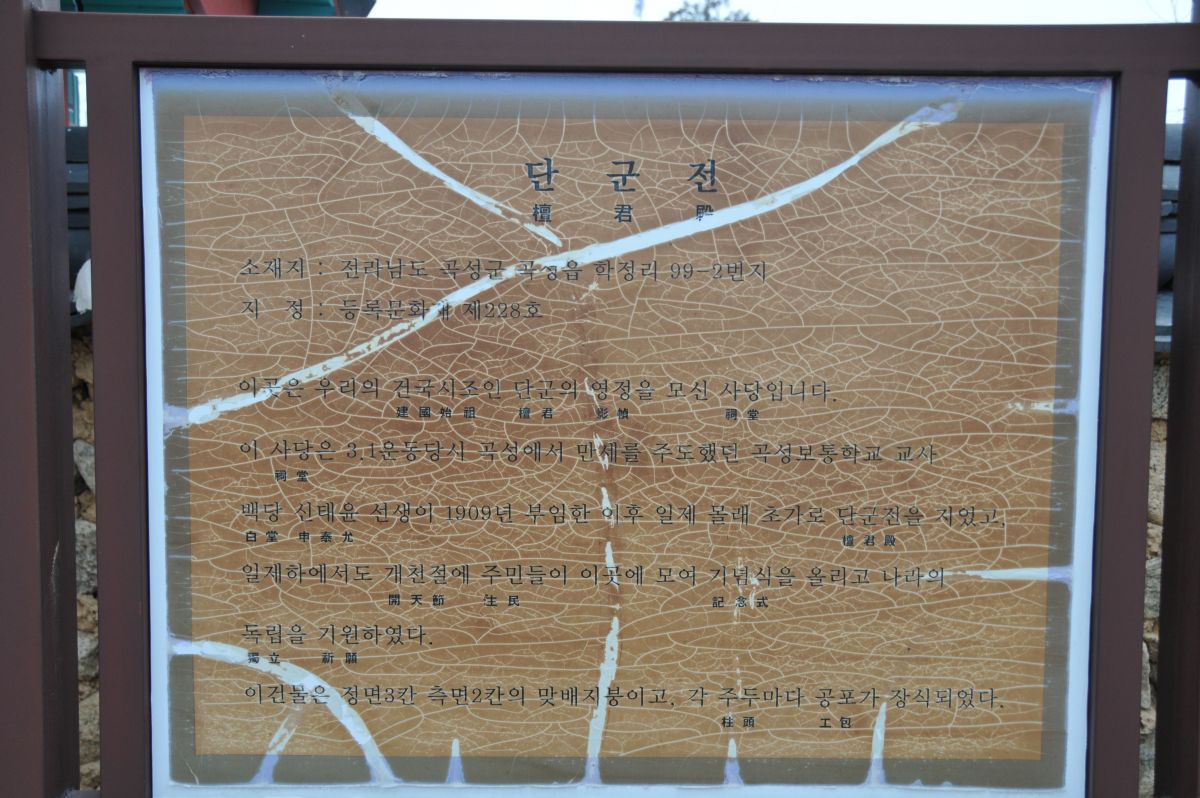 단군전
檀君殿
소재지 : 전라남도 곡성군 곡성읍 학정리 99-2번지
지 정 : 등록문화재 제228호
이곳은 우리의 건국시조인 단군의 영정을 모신 사당입니다.
建國始祖 檀君 影幀 祠堂
이 사당은 3.1운동당시 곡성에서 만세를 주도했던 곡성보통학교 교사
祠堂
백당 신태윤 선생이 1909년 부임한 이후 일제 몰래 초가로 단군전을 지었고,
白堂 申泰允 檀君殿
일제하에서도 개천절에 주민들이 이곳에 모여 기념식을 올리고 나라의
開天節 住民 記念式
독립을 기원하였다.
獨立 祈願
이건물은 정면3칸 측면2칸의 맞배지붕이고, 각 주두마다 공포가 장식되었다.
柱頭 工包